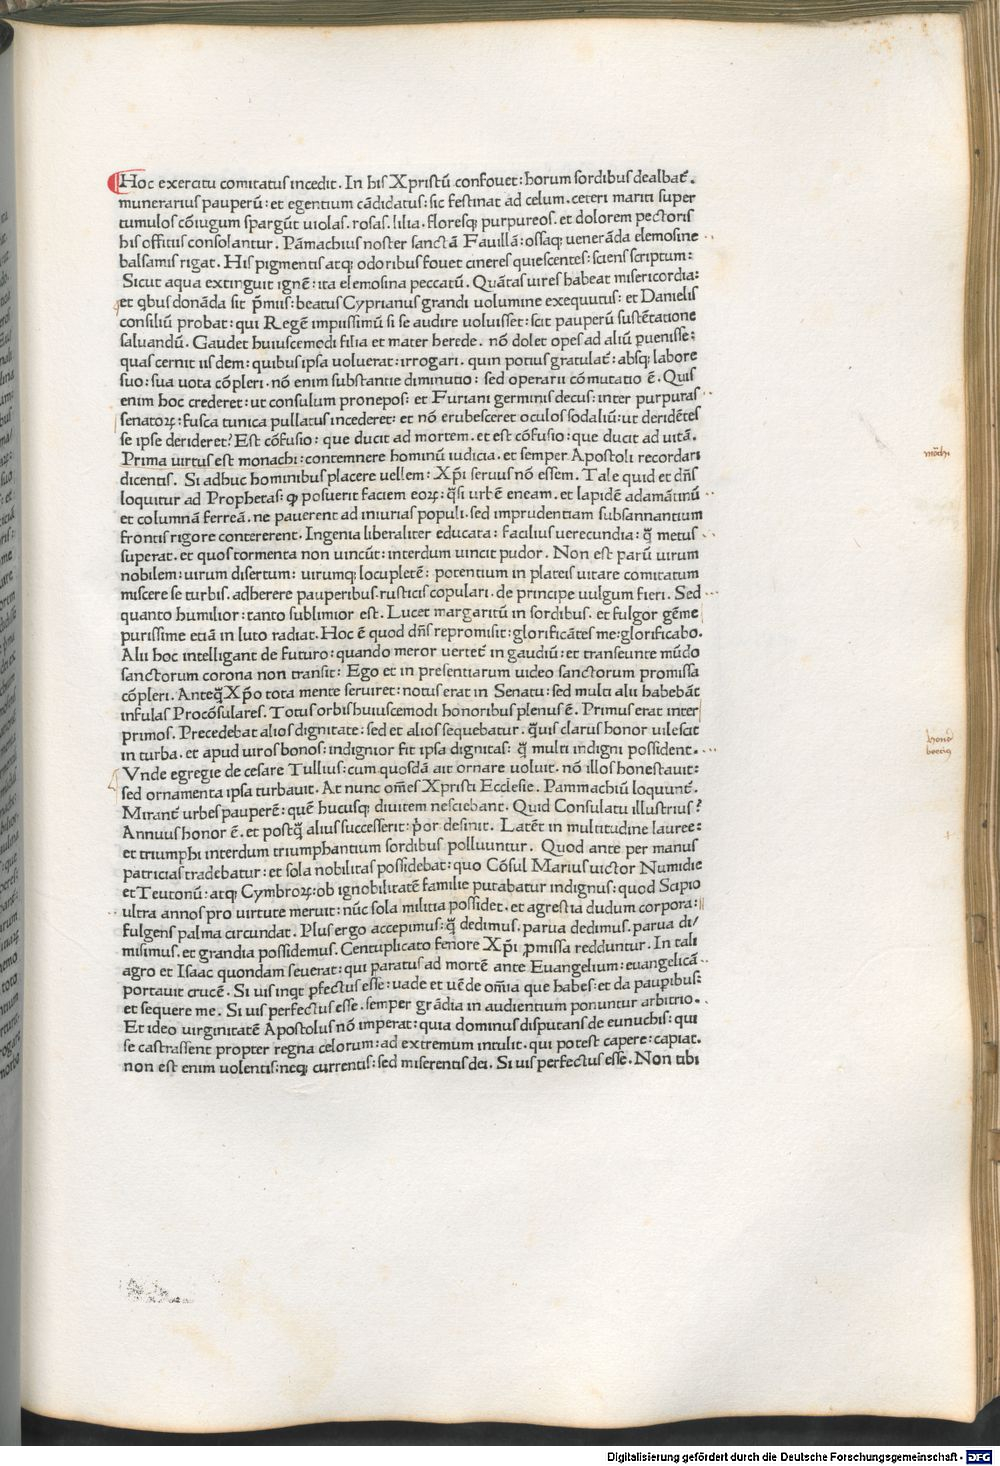 Hoc exercitu comitatus incedit. In his Xpristū confouet: horum sordibus dealbat̄.
munerarius pauperū: et egentium cādidatus: sic festinat ad celum. ceteri mariti super
tumulos cōiugum spargūt uiolas. rosas. lilia. floresq; purpureos. et dolorem pectoris
his offitiis consolantur. Pāmachius noster sanctā Fauillā: ossaq; uenerāda elemosine
balsamis rigat. His pigmentis atq; odoribus fouet cineres quiescentes: sciens scriptum:
Sicut aqua extinguit ignē: ita elemosina peccatū. Quātas uires habeat misericordia:
et qbus donāda sit p̄mus: beatus Cyprianus grandi uolumine exequutus: et Danielis
consiliū probat: qui Regē impiissimū si se audire uoluisset: scit pauperū sustētatione
saluandū. Gaudet huiuscemodi filia et mater herede. nō dolet opes ad aliū ꝑuenisse:
quas cernit iisdem: quibus ipsa uoluerat: irrogari. quin potius gratulat̄: absq; labore
suo: sua uota cōpleri. nō enim substantie diminutio: sed operarii cōmutatio ē. Quis
enim hoc crederet: ut consulum pronepos: et Furiani germinis decus: inter purpuras
senatoꝝ: fusca tunica pullatus incederet: et nō erubesceret oculos sodaliū: ut deridētes
se ipse derideret? Est cōfusio: que ducit ad mortem. et est cōfusio: que ducit ad uitā.
Prima uirtus est monachi: contemnere hominū iudicia. et semper Apostoli recordari
dicentis. Si adhuc hominibus placere uellem: Xp̄i seruus nō essem. Tale quid et dn̄s
loquitur ad Prophetas: ꝙ posuerit faciem eoꝝ: q̄si urbē eneam. et lapidē adamātinū
et columnā ferreā. ne pauerent ad iniurias populi. sed imprudentiam subsannantium
frontis rigore contererent. Ingenia liberaliter educata: facilius uerecundia: q̄ metus
superat. et quos tormenta non uincūt: interdum uincit pudor. Non est parū uirum
nobilem: uirum disertum: uirumq; locupletē: potentium in plateis uitare comitatum
miscere se turbis. adherere pauperibus. rusticis copulari. de principe uulgum fieri. Sed
quanto humilior: tanto sublimior est. Lucet margaritū in sordibus. et fulgor gēme
purissime etiā in luto radiat. Hoc ē quod dn̄s repromisit: glorificātes me: glorificabo.
Alii hoc intelligant de futuro: quando meror uertet̄ in gaudiū: et transeunte mūdo
sanctorum corona non transit: Ego et in presentiarum uideo sanctorum promissa
cōpleri. Anteq̄ Xp̄o tota mente seruiret: notus erat in Senatu: sed multi alii habebāt
infulas Procōsulares. Totus orbis huiuscemodi honoribus plenus ē. Primus erat inter
primos. Precedebat alios dignitate: sed et alios sequebatur. q̄uis clarus honor uilescit
in turba. et apud uiros bonos: indignior fit ipsa dignitas: q̄ multi indigni possident.
Vnde egregie de cesare Tullius: cum quosdā ait ornare uoluit. nō illos honestauit:
sed ornamenta ipsa turbauit. At nunc om̄es Xpristi Ecclesie. Pammachiū loquunt̄.
Mirant̄ urbes pauperē: quē hucusq; diuitem nesciebant. Quid Consulatu illustrius?
Annuus honor ē. et postq̄ alius successerit: p̄or desinit. Latēt in multitudine lauree:
et triumphi interdum triumphantium sordibus polluuntur. Quod ante per manus
patricias tradebatur: et sola nobilitas possidebat: quo Cōsul Marius uictor Numidie
et Teutonū: atq; Cymbroꝝ: ob ignobilitatē familie putabatur indignus: quod Scipio
ultra annos pro uirtute meruit: nūc sola militia possidet. et agrestia dudum corpora:
fulgens palma circundat. Plus ergo accepimus: q̄ dedimus. parua dedimus. parua di/
misimus. et grandia possidemus. Centuplicato fenore Xp̄i ꝓmissa redduntur. In tali
agro et Isaac quondam seuerat: qui paratus ad mortē ante Euangelium: euangelicā
portauit crucē. Si uis inqt ꝑfectus esse: uade et uēde om̄ia que habes: et da paupibus:
et sequere me. Si uis perfectus esse. semper grādia in audientium ponuntur arbitrio.
Et ideo uirginitatē Apostolus nō imperat: quia dominus disputans de eunuchis: qui
se castrassent propter regna celorum: ad extremum intulit. qui potest capere: capiat.
non est enim uolentis: neq; currentis: sed miserentis dei. Si uis perfectus esse. Non tibi
Digitalisierung gefördert durch die Deutsche Forschungsgemeinschaft - DFG